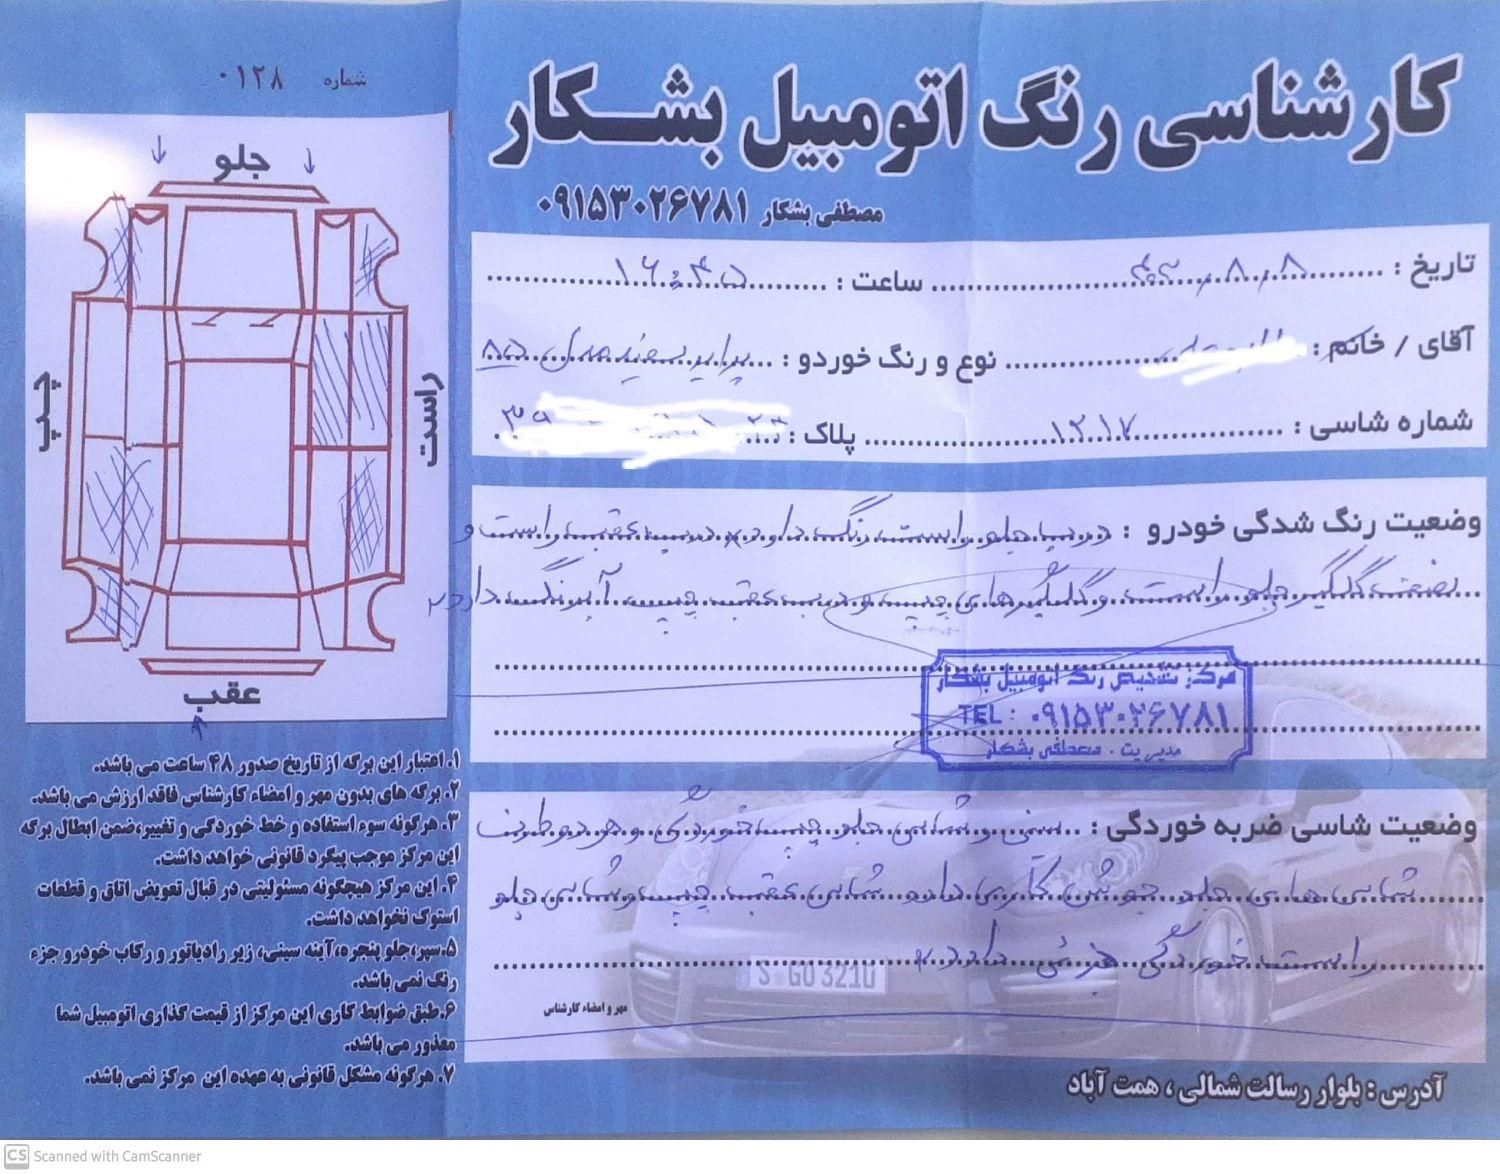 کارشناسی رنگ اتومبیل بشکار
مصطفی بشکار ۰۹۱۵۳۰۲۶۷۸۱
شماره ۰۱۲۸
جلو
چپ
راست
عقب
تاریخ : ۸/۸/ ساعت : ۱۶:۴۵
آقای / خانم : نوع و رنگ خوردو : پراید سفید مدل ۸۵
شماره شاسی : ۱۲۱۷ پلاک :
وضعیت رنگ شدگی خودرو : درب جلو راست رنگ دارد درب عقب راست و
نصف گلگیر جلو راست و گلگیرهای چپ و درب عقب چپ آبرنگ دارد
مرکز تشخیص رنگ اتومبیل بشکار
TEL : ۰۹۱۵۳۰۲۶۷۸۱
مدیریت . مصطفی بشکار
وضعیت شاسی ضربه خوردگی : سینی و شاسی جلو چپ خوردگی و هر دو طرف
شاسی های جلو جوش کاری دارد شاسی عقب چپ و شاسی جلو
راست خوردگی جزئی دارد
S GO 3210
مهر و امضاء کارشناس
۱. اعتبار این برگه از تاریخ صدور ۴۸ ساعت می باشد.
۲. برگه های بدون مهر و امضاء کارشناس فاقد ارزش می باشد.
۳. هرگونه سوء استفاده و خط خوردگی و تغییر،ضمن ابطال برگه
این مرکز موجب پیگرد قانونی خواهد داشت.
۴. این مرکز هیچگونه مسئولیتی در قبال تعویض اتاق و قطعات
استوک نخواهد داشت.
۵. سپر،جلو پنجره،آینه سینی، زیر رادیاتور و رکاب خودرو جزء
رنگ نمی باشد.
۶. طبق ضوابط کاری این مرکز از قیمت گذاری اتومبیل شما
معذور می باشد.
۷. هرگونه مشکل قانونی به عهده این مرکز نمی باشد.
آدرس : بلوار رسالت شمالی ، همت آباد
CS Scanned with CamScanner